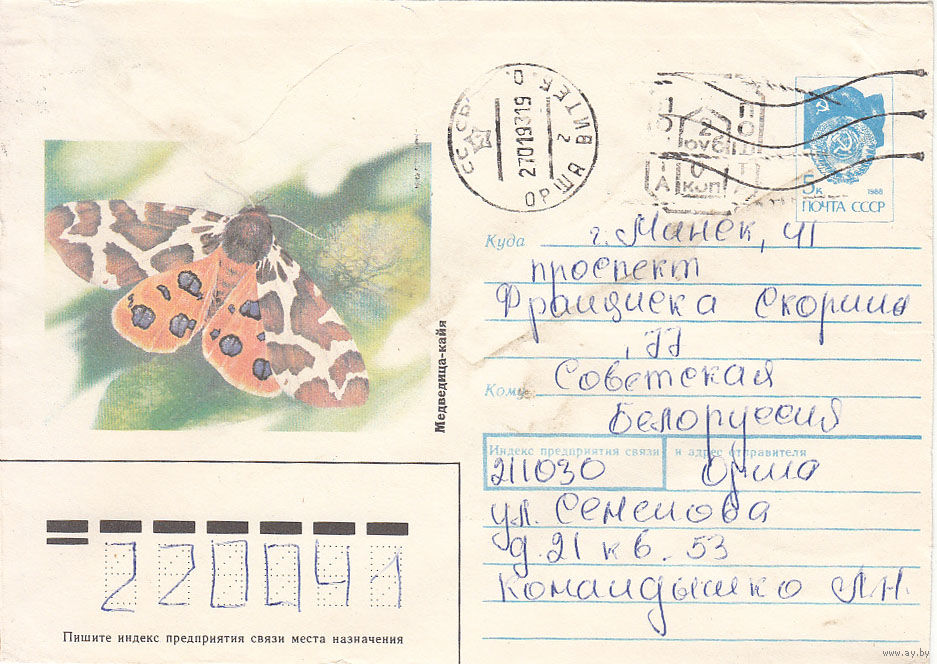 Медведица-кайя
ВИТЕБ
ОРША
27019319
2
РУБ
0
КОП
5к
1988
ПОЧТА СССР
Куда г. Минск, 41
проспект
Франциска Скорины
, 77
Советская
Кому
Белоруссия
Индекс предприятия связи и адрес отправителя
211030 Орша
ул. Семенова
д. 21 кв. 53
Командышко Л.Н.
220041
Пишите индекс предприятия связи места назначения
www.ay.by